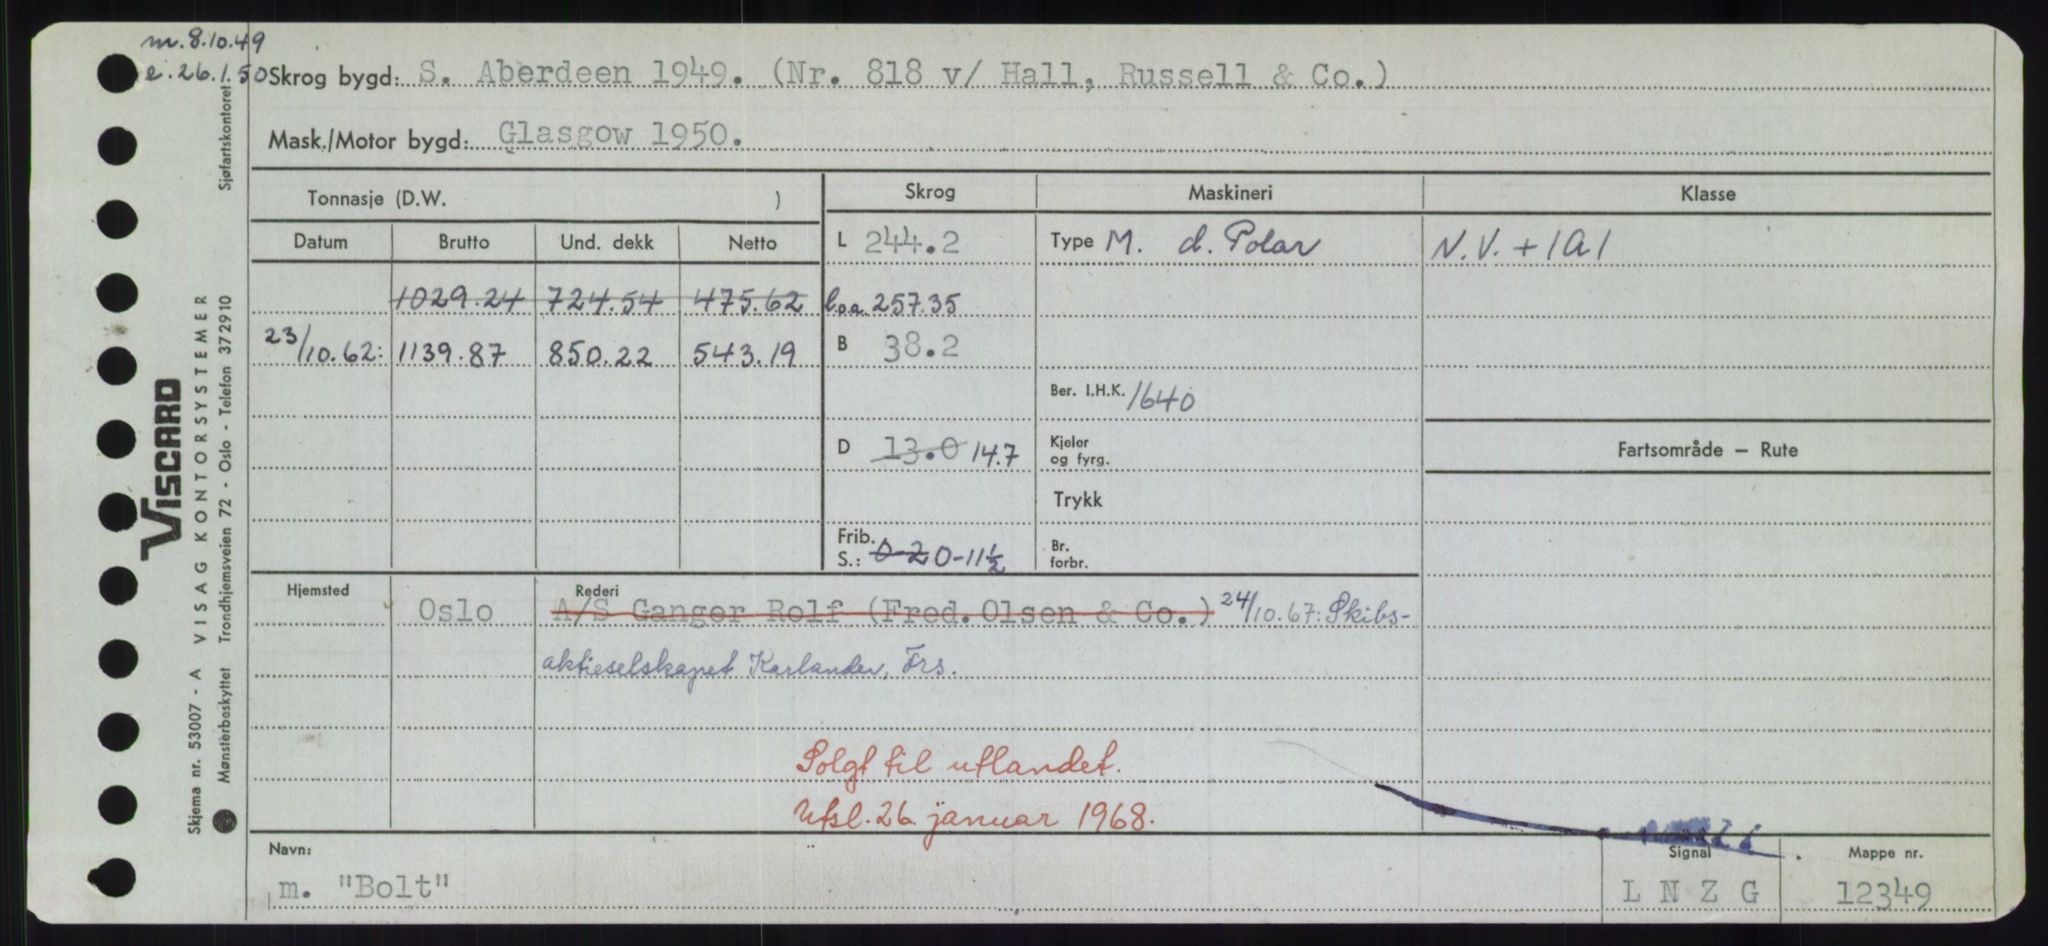 m. 8.10.49
e. 26.1.50
Skrog bygd: S. Aberdeen 1949. (Nr. 818 v/ Hall, Russell & Co.)
Mask./Motor bygd: Glasgow 1950.
Tonnasje (D.W. )
Skrog
Maskineri
Klasse
Datum Brutto Und. dekk Netto
L 244.2
Type M. d. Polar
N.V. + 1A1
1029.24 724.54 475.62
l.o.a. 257.35
23/10.62: 1139.87 850.22 543.19
B 38.2
Ber. I.H.K. 1640
D 13.0 14.7
Kjeler og fyrg.
Fartsområde – Rute
Trykk
Frib. S.: 0-2 0-11½
Br. forbr.
Hjemsted
Rederi
Oslo A/S Ganger Rolf (Fred. Olsen & Co.) 24/10.67: Skibs-
aktieselskapet Karlander, Frs.
Solgt til utlandet.
Utsl. 26. januar 1968.
Navn:
m. "Bolt"
Signal
L N Z G
Mappe nr.
12349
VISCARD
Skjema nr. 53007 - A VISAG KONTORSYSTEMER
Mønsterbeskyttet Trondhjemsveien 72 - Oslo - Telefon 372910
Sjøfartskontoret